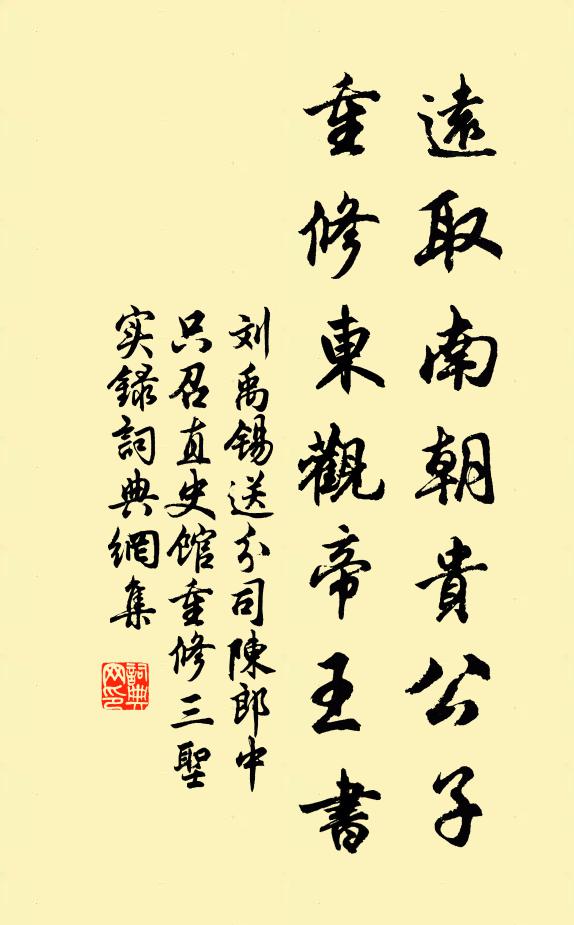 遠取南朝貴公子
重修東觀帝王書
刘禹锡送分司陳郎中
只召直史馆重修三聖
实録詞典網集
詞典網印